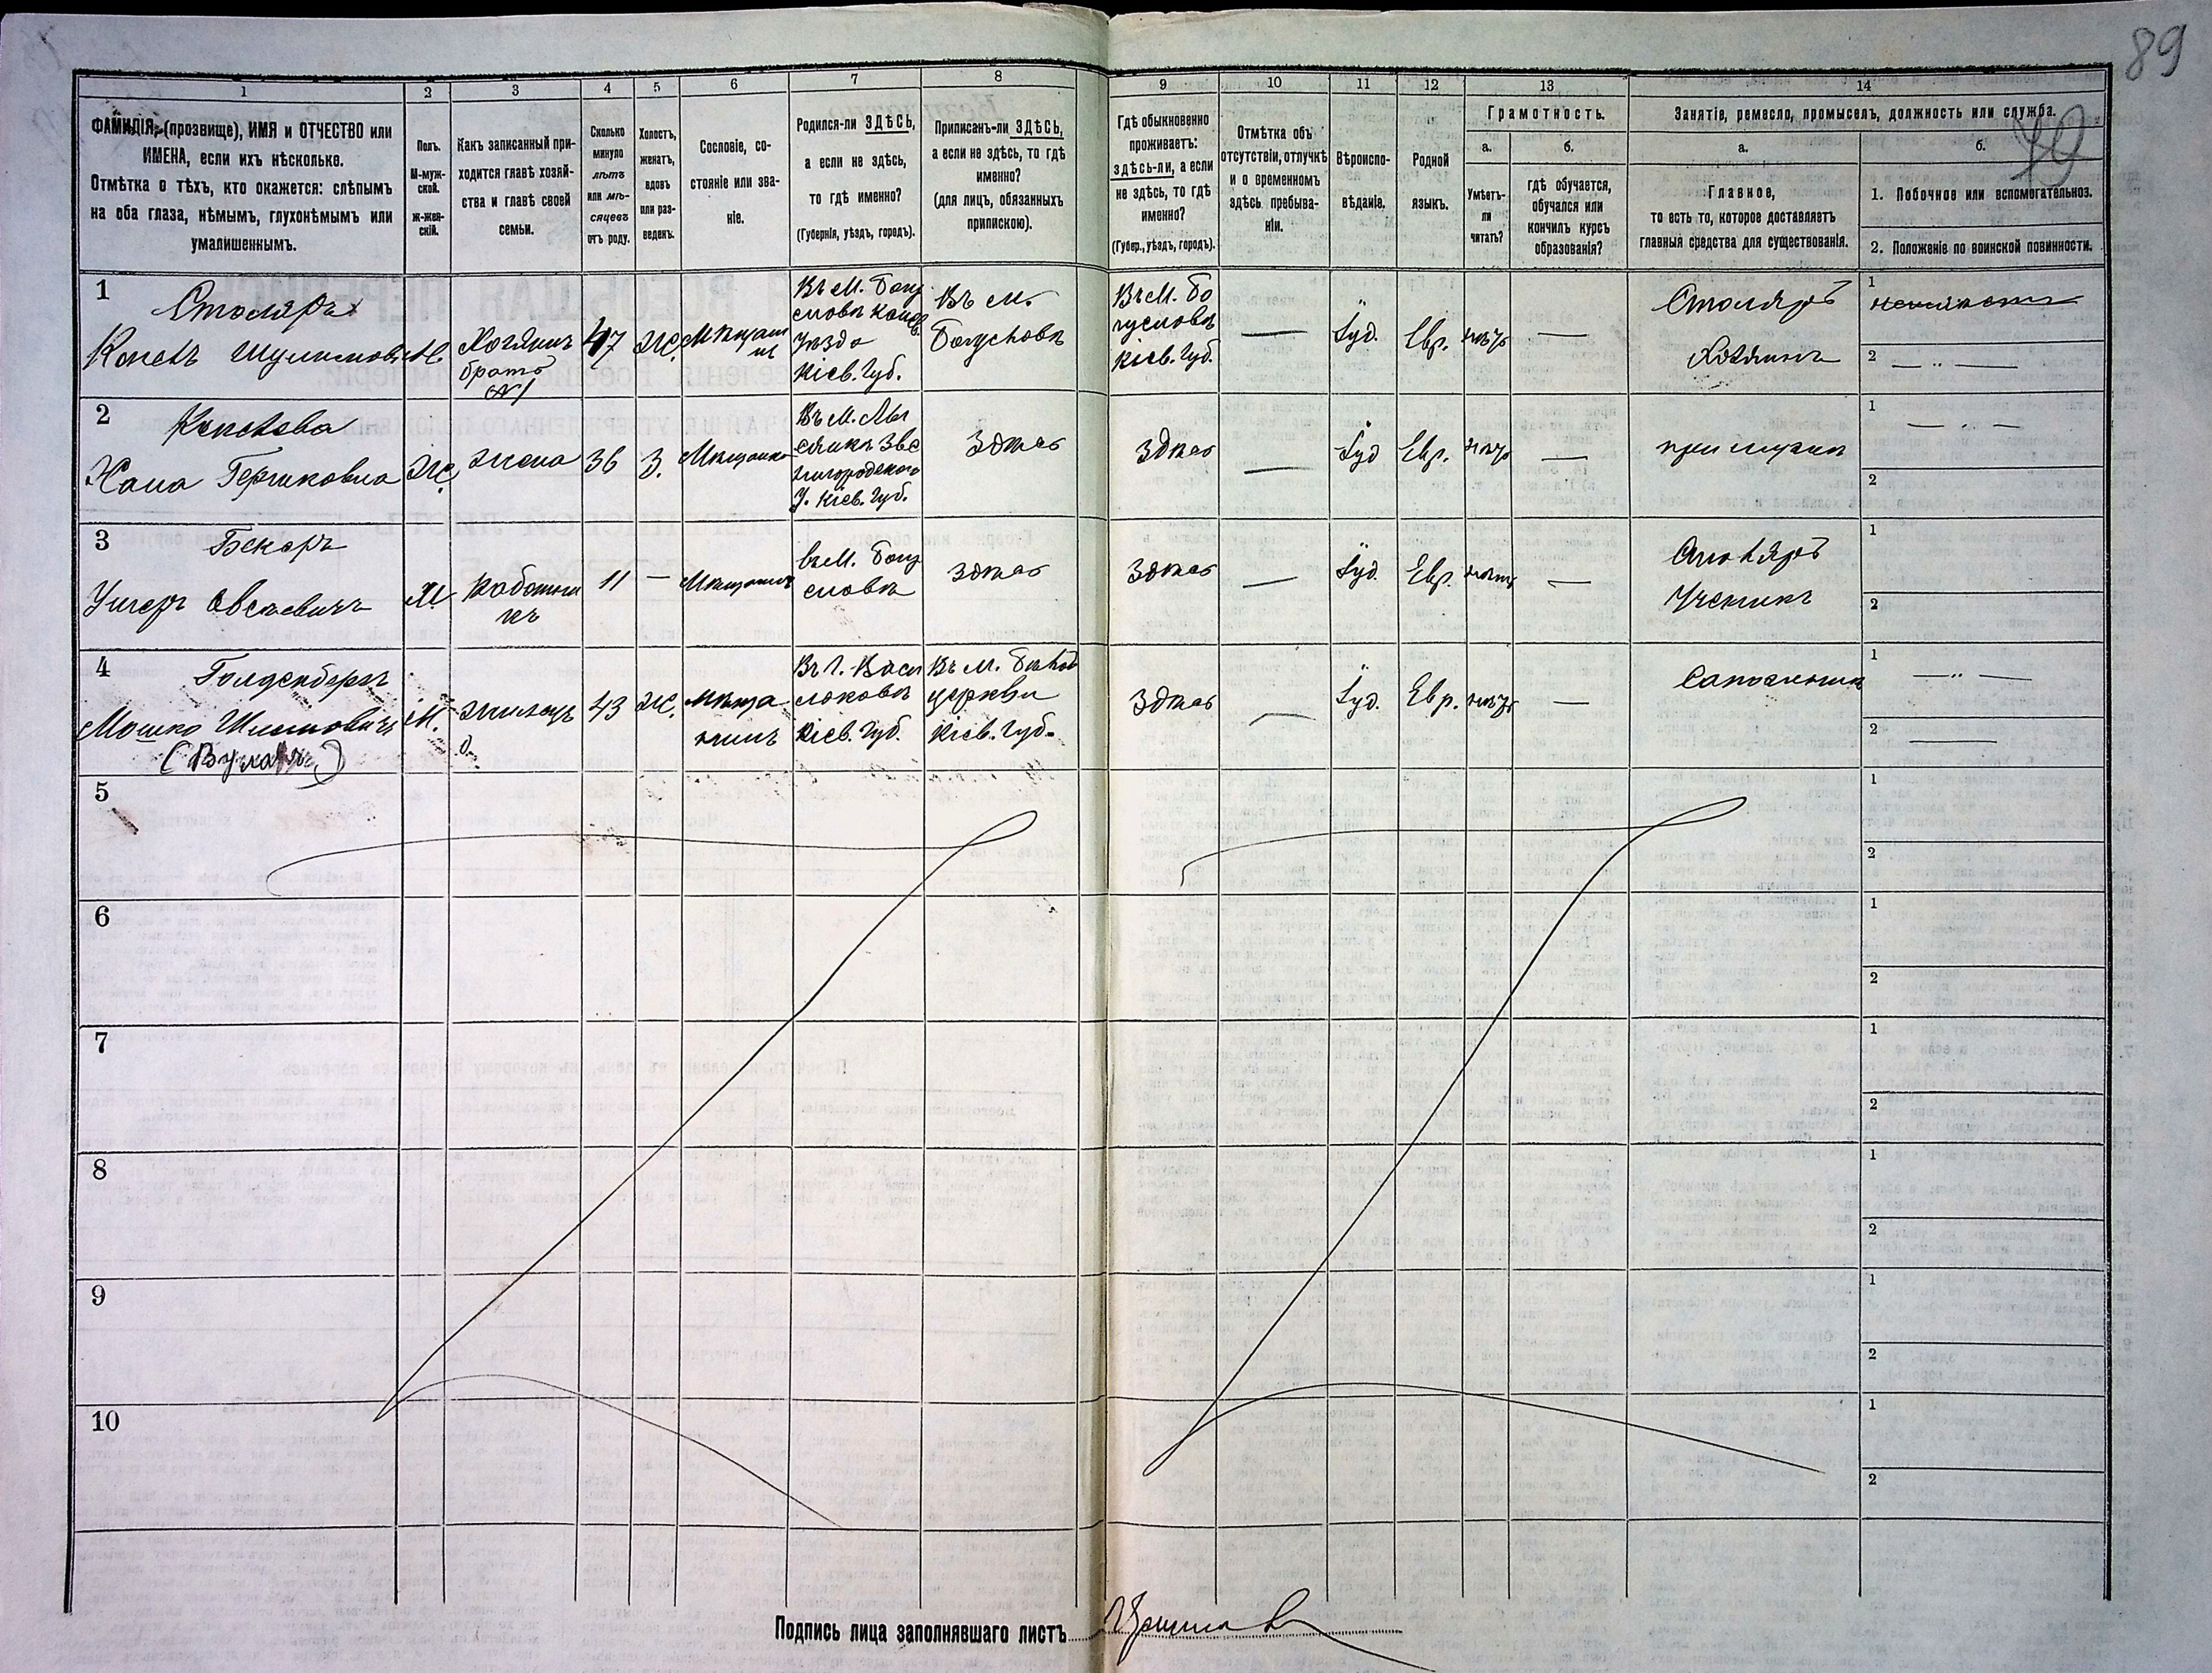 89
1 2 3 4 5 6 7 8 9 10 11 12 13 14
ФАМИЛІЯ, (прозвище), ИМЯ и ОТЧЕСТВО или
ИМЕНА, если ихъ нѣсколько.
Отмѣтка о тѣхъ, кто окажется: слѣпымъ
на оба глаза, нѣмымъ, глухонѣмымъ или
умалишеннымъ.
Полъ.
М-муж-
ской.
ж-жен-
скій.
Какъ записанный при-
ходится главѣ хозяй-
ства и главѣ своей
семьи.
Сколько
минуло
лѣтъ
или мѣ-
сяцевъ
отъ роду.
Холостъ,
женатъ,
вдовъ
или раз-
веденъ.
Сословіе, со-
стояніе или зва-
ніе.
Родился-ли ЗДѢСЬ,
а если не здѣсь,
то гдѣ именно?
(Губернія, уѣздъ, городъ).
Приписанъ-ли ЗДѢСЬ,
а если не здѣсь, то гдѣ
именно?
(для лицъ, обязанныхъ
припискою).
Гдѣ обыкновенно
проживаетъ:
здѣсь-ли, а если
не здѣсь, то гдѣ
именно?
(Губер., уѣздъ, городъ).
Отмѣтка объ
отсутствіи, отлучкѣ
и о временномъ
здѣсь пребыва-
ніи.
Вѣроиспо-
вѣданіе.
Родной
языкъ.
Грамотность.
а.
Умѣетъ-
ли
читать?
б.
гдѣ обучается,
обучался или
кончилъ курсъ
образованія?
Занятіе, ремесло, промыселъ, должность или служба.
а.
Главное,
то есть то, которое доставляетъ
главныя средства для существованія.
б.
1. Побочное или вспомогательное.
2. Положеніе по воинской повинности.
1
Столяръ
Шулимовъ
М.
Хозяинъ
братъ
№1
47
Ж.
Мѣщанин
Въ М. Богу
славѣ Канев.
уѣзда
Кіев. Губ.
Въ м.
Богуславѣ
Въ М. Бо
гуславѣ
Кіев. Губ.
—
Іуд.
Евр.
—
Столяръ
Хозяинъ
1
2 — " —
2
Хана Гершковна
Ж.
жена
36
З.
Мѣщанка
Въ М. Лы
сянкѣ Зве
нигородского
У. Кіев. Губ.
Здѣсь
Здѣсь
—
Іуд
Евр.
—
при мужѣ
1 — " —
2
3
Бекеръ
Ушеръ Овсѣевичъ
М
Работни
къ
11
—
Мѣщанинъ
въ М. Богу
славѣ
Здѣсь
Здѣсь
—
Іуд.
Евр.
—
Столяръ
Ученикъ
1
2
4
Голденбергъ
Мошко Шлиомовичъ
М.
жилецъ
43
Ж.
мѣща
нинъ
Въ Г. Васи
льковѣ
Кіев. Губ.
Въ М. Бѣлой
церкви
Кіев. Губ.
Здѣсь
—
Іуд.
Евр.
—
Сапожникъ
1 — " —
2 —
5 1
2
6 1
2
7 1
2
8 1
2
9 1
2
10 1
2
Подпись лица заполнявшаго листъ